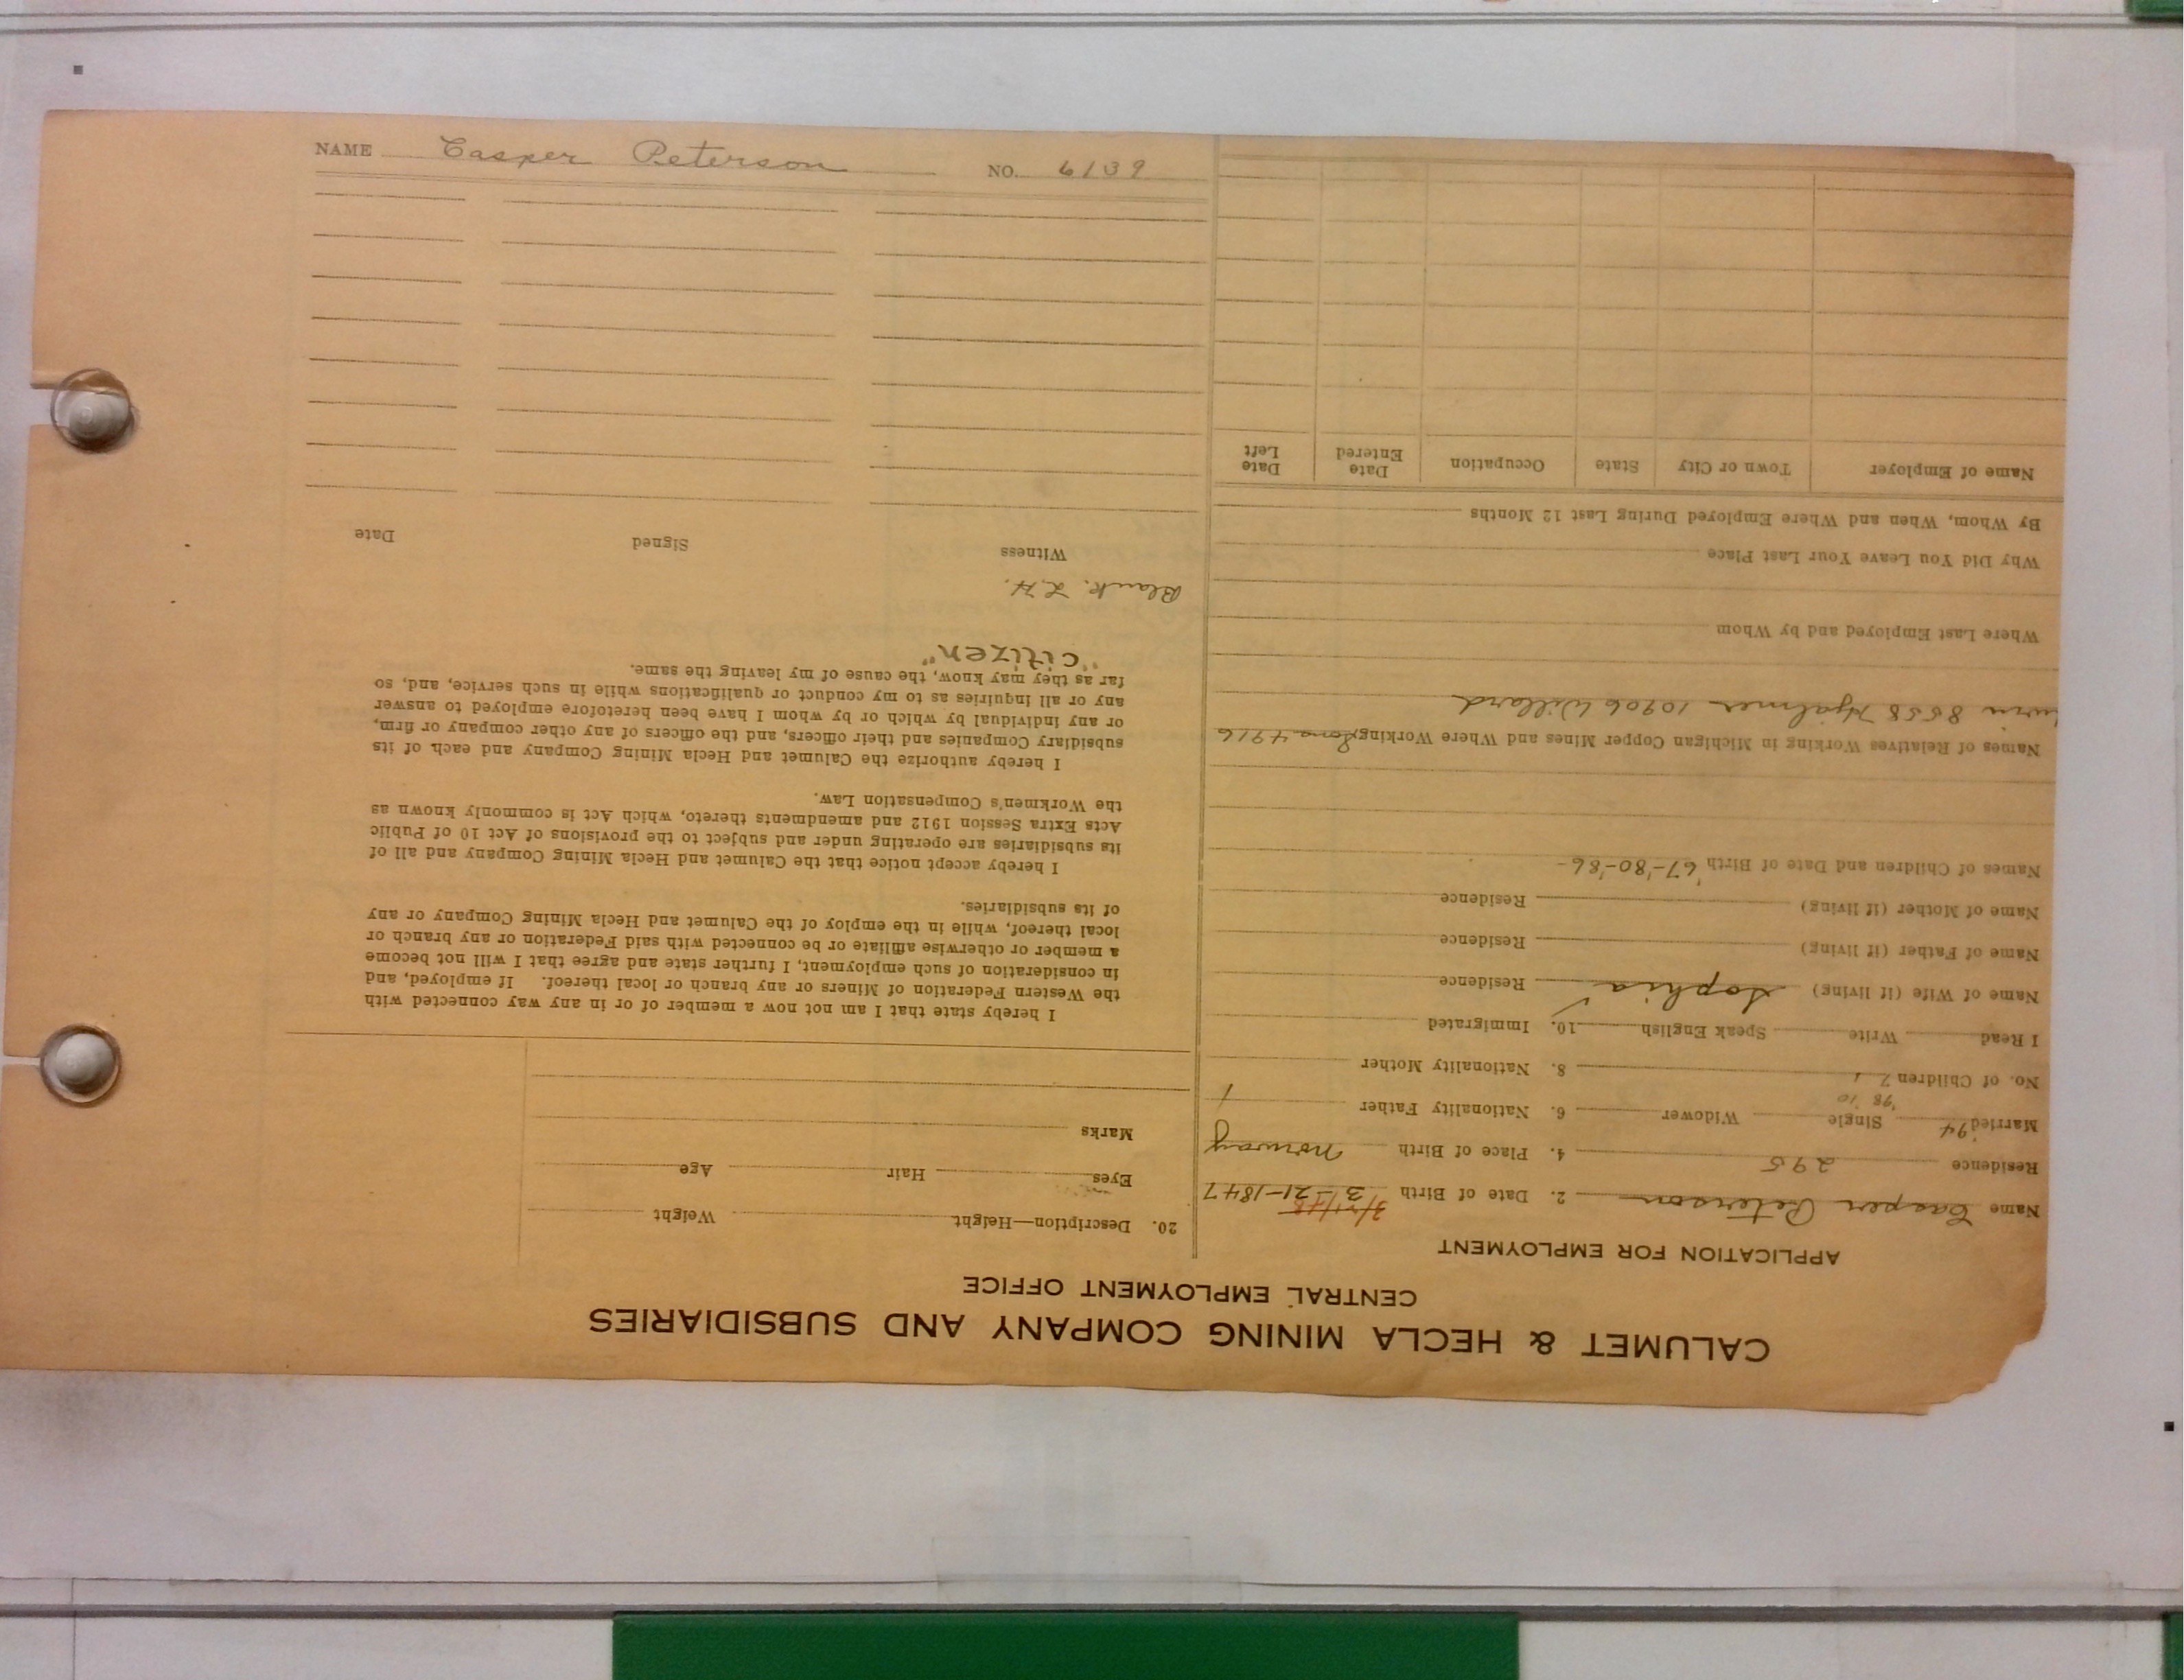 CALUMET & HECLA MINING COMPANY AND SUBSIDIARIES
CENTRAL EMPLOYMENT OFFICE
APPLICATION FOR EMPLOYMENT
Name Casper Peterson 2. Date of Birth 3-21-1847
Residence 295 4. Place of Birth Norway
Married '94 Single '98 '10 Widower 6. Nationality Father
No. of Children 7 8. Nationality Mother
I Read Write Speak English 10. Immigrated
Name of Wife (if living) Sophia Residence
Name of Father (if living) Residence
Name of Mother (if living) Residence
Names of Children and Date of Birth '67-'80-'86-
Names of Relatives Working in Michigan Copper Mines and Where Working Sons 4916
8558 Hjalmer 10906 Willard
Where Last Employed and by Whom
Why Did You Leave Your Last Place
By Whom, When and Where Employed During Last 12 Months
Name of Employer Town or City State Occupation Date Entered Date Left
20. Description—Height Weight
Eyes Hair Age
Marks
I hereby state that I am not now a member of or in any way connected with
the Western Federation of Miners or any branch or local thereof. If employed, and
in consideration of such employment, I further state and agree that I will not become
a member or otherwise affiliate or be connected with said Federation or any branch or
local thereof, while in the employ of the Calumet and Hecla Mining Company or any
of its subsidiaries.
I hereby accept notice that the Calumet and Hecla Mining Company and all of
its subsidiaries are operating under and subject to the provisions of Act 10 of Public
Acts Extra Session 1912 and amendments thereto, which Act is commonly known as
the Workmen's Compensation Law.
I hereby authorize the Calumet and Hecla Mining Company and each of its
subsidiary Companies and their officers, and the officers of any other company or firm,
or any individual by which or by whom I have been heretofore employed to answer
any or all inquiries as to my conduct or qualifications while in such service, and, so
far as they may know, the cause of my leaving the same.
"Citizen"
Blank. L.H.
Witness Signed Date
NAME Casper Peterson NO. 6139